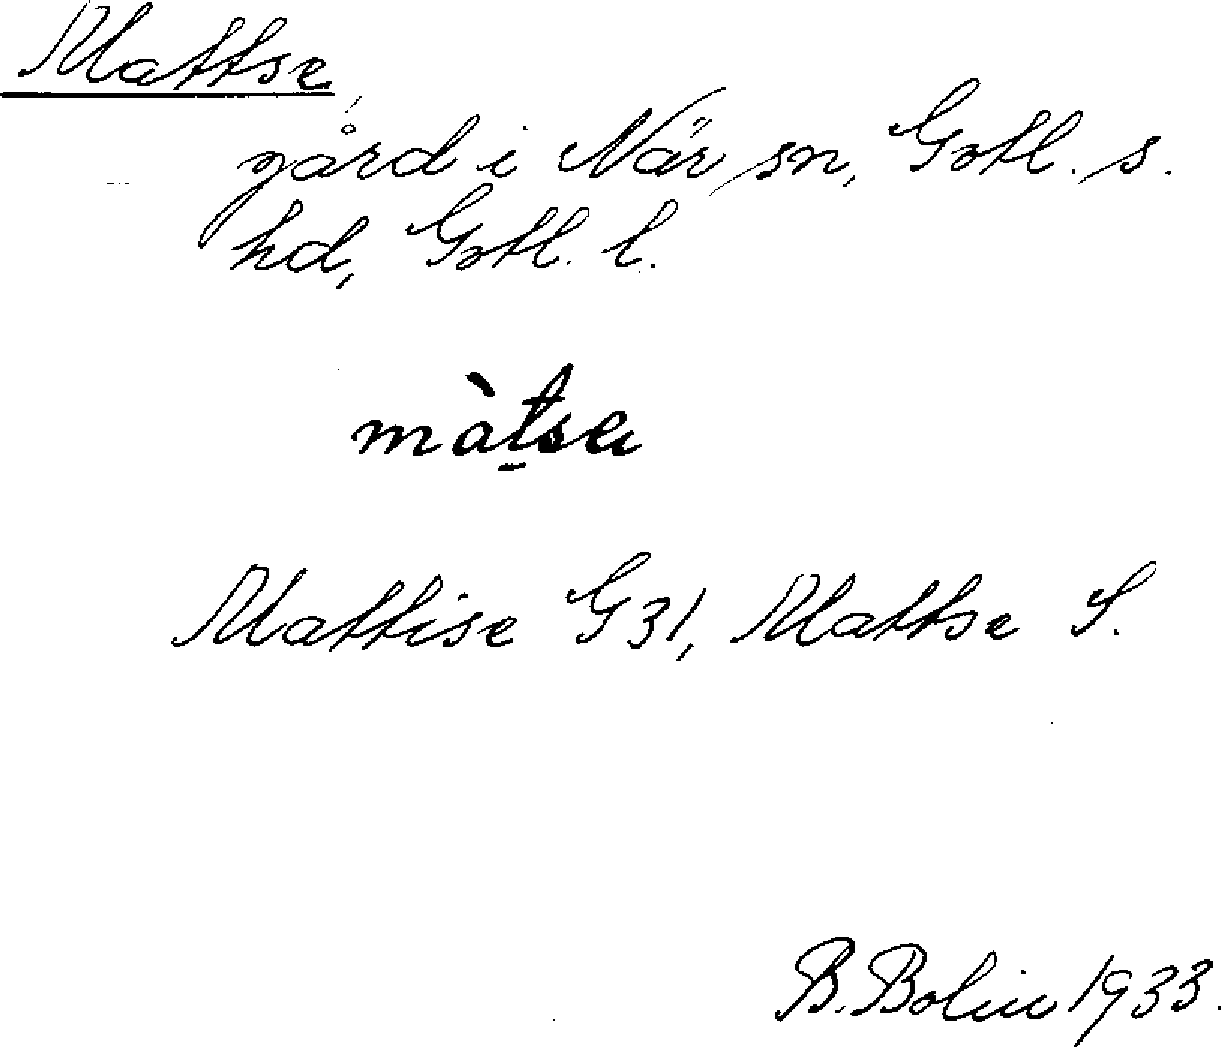 Mattse
gård i När sn, Gotl. s.
hd, Gotl. l.
màt̠se
Mattise G31, Mattse S.
B. Bolin 1933.